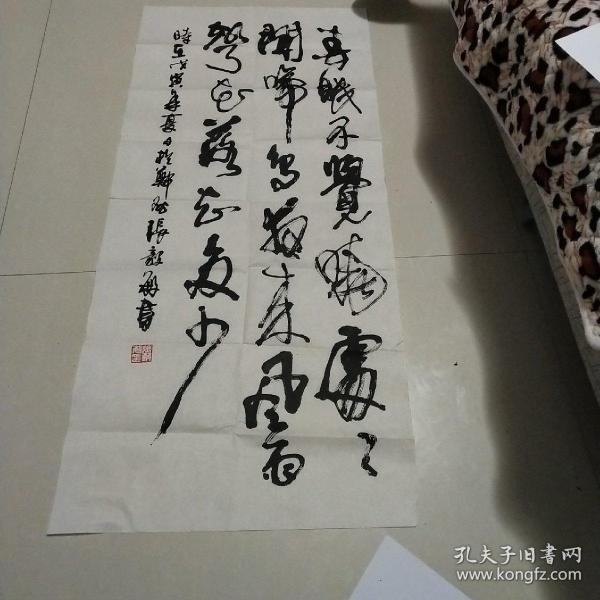 春眠不覺曉處々
聞啼鳥夜來風雨
聲花落知多少
時在戊寅年夏月於 張 書
孔夫子旧书网
www.kongfz.com